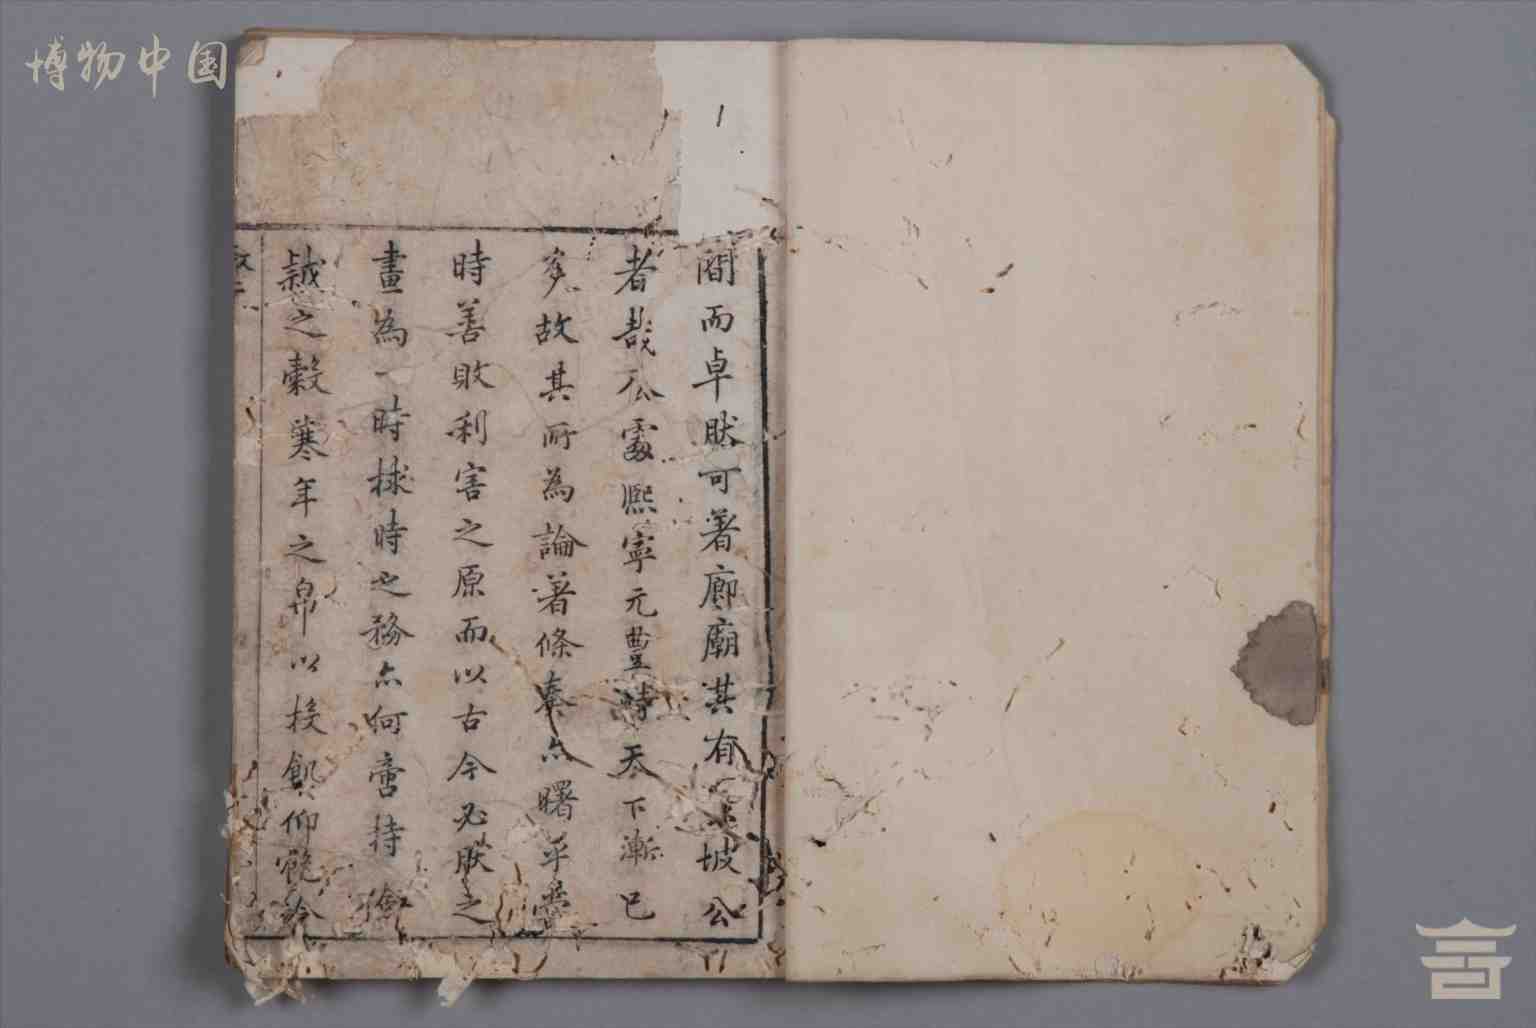 博物中国
間而卓然可著廊廟其有坡公
者哉公當熙寧元豐時天下漸已
故其所為論著條奏亦曙乎
時善敗利害之原而以古今必然之
畫為一時捄時之務亦何啻持
之穀寒年之帛以投飢仰